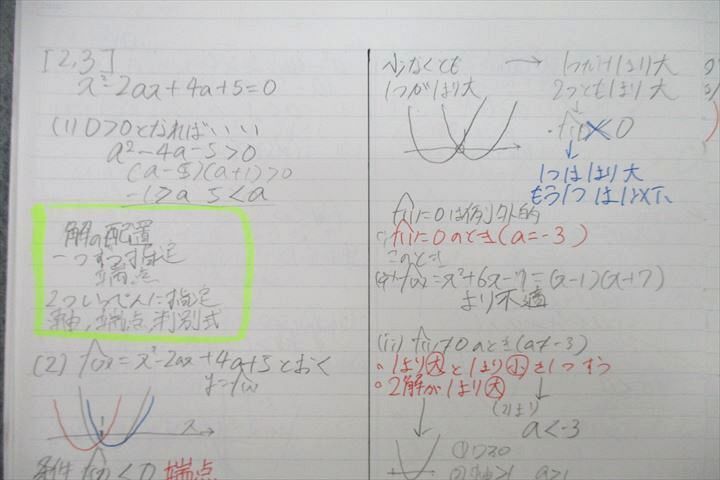 [2,3]
x²-2ax+4a+5=0
(1) D>0となればいい
a²-4a-5>0
(a-5)(a+1)>0
-1>a 5<a
解の配置
一つずつ指定
端点
2ついっぺんに指定
軸,端点,判別式
(2) f(x)=x²-2ax+4a+5とおく
y=f(x)
x
条件 f(1)<0 端点
少なくとも → 1つだけ1より大
1つが1より大 2つとも1より大
f(1) 0
1つは1より大
もう1つは1以下
f(1)=0は例外的
(i) f(1)=0のとき(a=-3)
このとき
f(x)=x²+6x-7=(x-1)(x+7)
より不適
(ii) f(1)≠0のとき(a≠-3)
・1より大と1より小を1つずつ
・2解が1より大
(2)より
a<-3
① D>0
② 軸>1 a>1